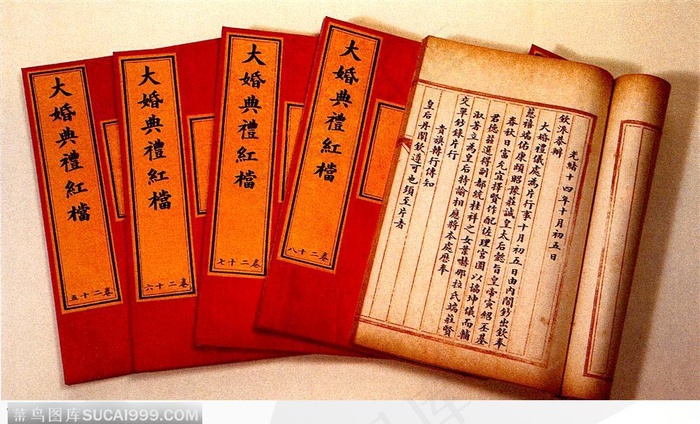 大婚典禮紅檔
卷二十五
大婚典禮紅檔
卷二十六
大婚典禮紅檔
卷二十七
大婚典禮紅檔
卷二十八
光緒十四年十月初五日
欽派恭辦
大婚禮儀處為片行事十月初五日由內閣鈔出欽奉
慈禧端佑康頤昭豫莊誠皇太后懿旨皇帝寅紹丕基
春秋日富允宜擇賢作配佐理宮闈以協坤儀而輔
君德茲選得副都統桂祥之女葉赫那拉氏端莊賢
淑著立為皇后特諭相應將本處奉
交單鈔錄片行
貴旗轉行傳知
皇后丹闡欽遵可也須至片者
菜鸟图库SUCAI999.COM